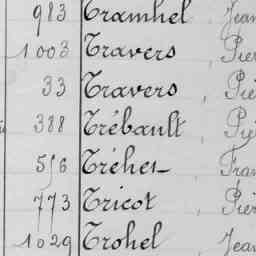 983 Tramhel Jean
1003 Travers, Pier
33 Travers, Piè
388 Trébault, Piè
556 Tréhet, Fran
773 Tricot, Pièr
1029 Trohel, Jean